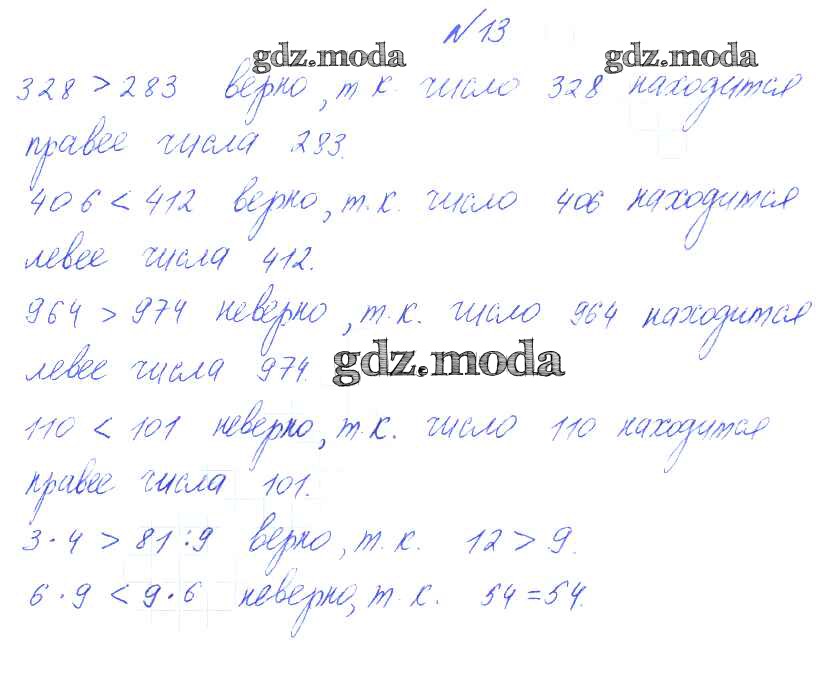 №13
gdz.moda gdz.moda
328 > 283 верно, т.к. число 328 находится
правее числа 283.
406 < 412 верно, т.к. число 406 находится
левее числа 412.
964 > 974 неверно, т.к. число 964 находится
левее числа 974.
gdz.moda
110 < 101 неверно, т.к. число 110 находится
правее числа 101.
3·4 > 81:9 верно, т.к. 12 > 9.
6·9 < 9·6 неверно, т.к. 54 = 54.